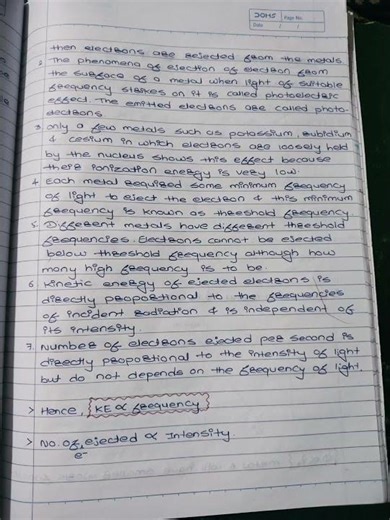 DOMS Page No.
Date / /
then electrons are rejected from the metals.
2. The phenomena of ejection of electron from
the surface of a metal when light of suitable
frequency strikes on it is called photoelectric
effect. The emitted electrons are called photo-
electrons
3. only a few metals such as potassium, rubidium
& cesium in which electrons are loosely held
by the nucleus shows this effect because
their ionization energy is very low.
4. Each metal required some minimum frequency
of light to eject the electron & this minimum
frequency is known as threshold frequency
5. Different metals have different threshold
frequencies. Electrons cannot be ejected
below threshold frequency although how
many high frequency is to be.
6. Kinetic energy of ejected electrons is
directly proportional to the frequencies
of incident radiation & is independent of
its intensity.
7. Number of electrons ejected per second is
directly proportional to the intensity of light
but do not depends on the frequency of light.
> Hence, KE ∝ frequency
> No. of ejected ∝ Intensity.
e-